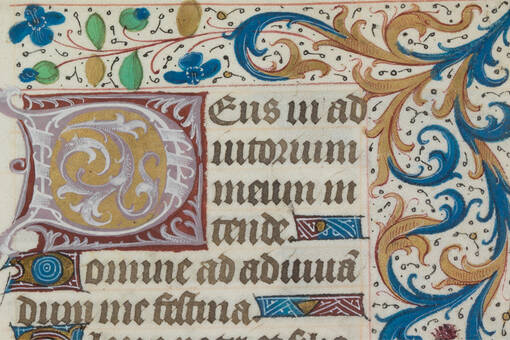 Deus in ad
iutorium
meum in
tende.
Domine ad adiuuā
dum me festina